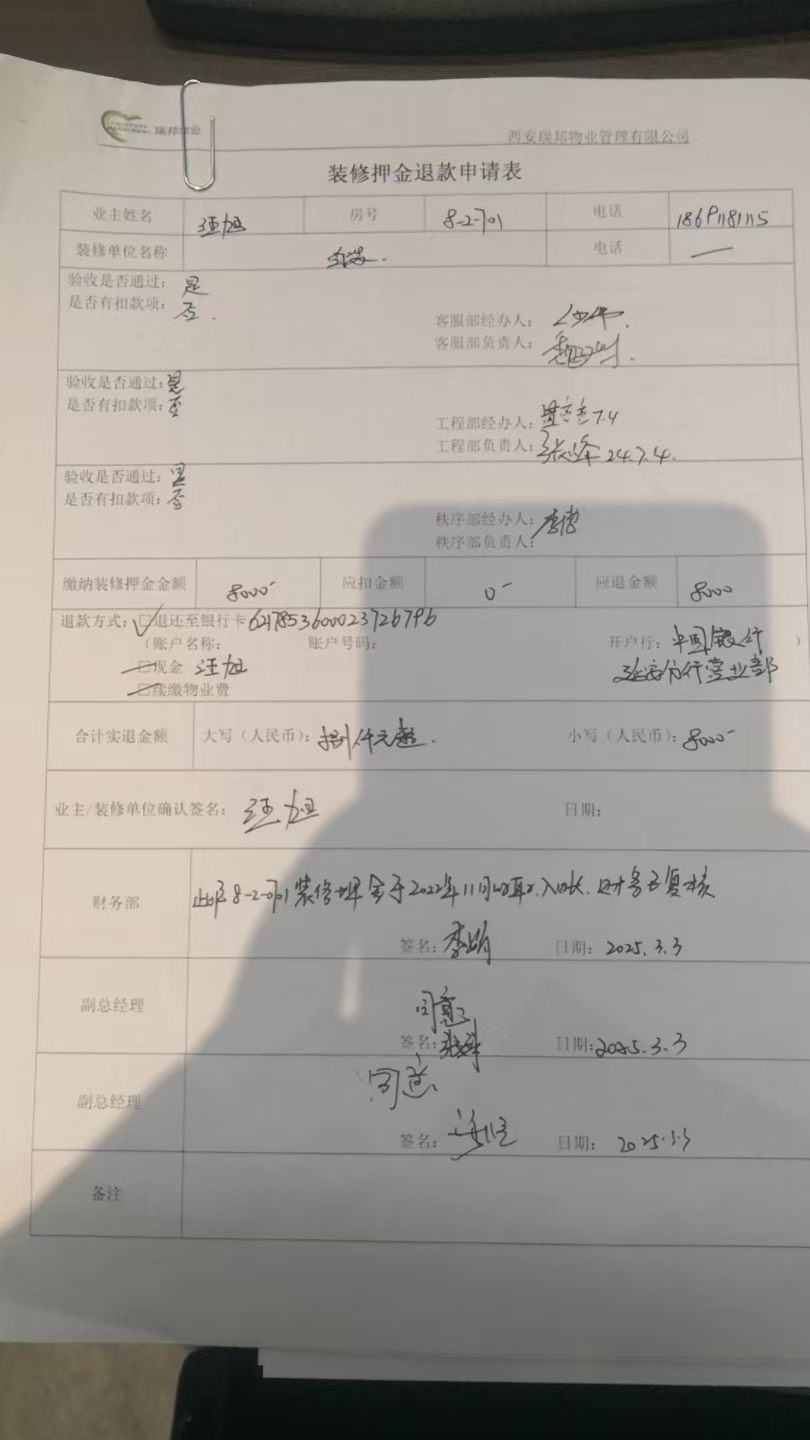 瑞邦物业 西安瑞邦物业管理有限公司
装修押金退款申请表
业主姓名 汪旭 房号 8-2-701 电话 18691181115
装修单位名称 电话 —
验收是否通过：是
是否有扣款项：否.
客服部经办人：
客服部负责人：
验收是否通过：是
是否有扣款项：否
工程部经办人： 7.4
工程部负责人：张峰 24.7.4.
验收是否通过：是
是否有扣款项：否
秩序部经办人：李伟
秩序部负责人：
缴纳装修押金金额 8000- 应扣金额 0- 应退金额 8000
退款方式：☑退还至银行卡6217853600023726796
（账户名称： 账户号码： 开户行：中国银行 ）
□现金 汪旭 延安分行营业部
□续缴物业费
合计实退金额 大写（人民币）：捌仟元整. 小写（人民币）：8000-
业主/装修单位确认签名：汪旭 日期：
财务部 此房8-2-0701装修押金于2022年11月 入账. 财务已复核
签名：李娟 日期：2025.3.3
副总经理 同意
签名： 日期：2025.3.3
副总经理 同意
签名： 日期：2025.3.3
备注